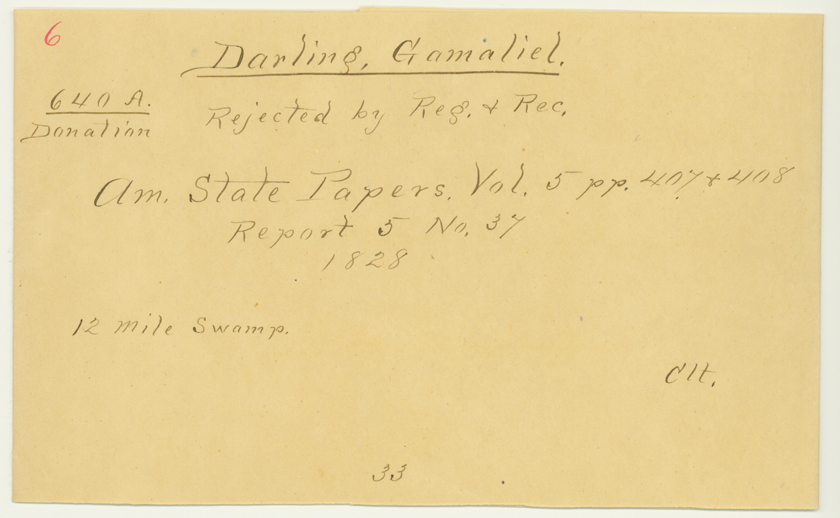 6
Darling, Gamaliel.
640 A.
Donation
Rejected by Reg. & Rec.
Am. State Papers. Vol. 5 pp. 407 & 408
Report 5 No. 37
1828
12 mile Swamp.
Clt.
33